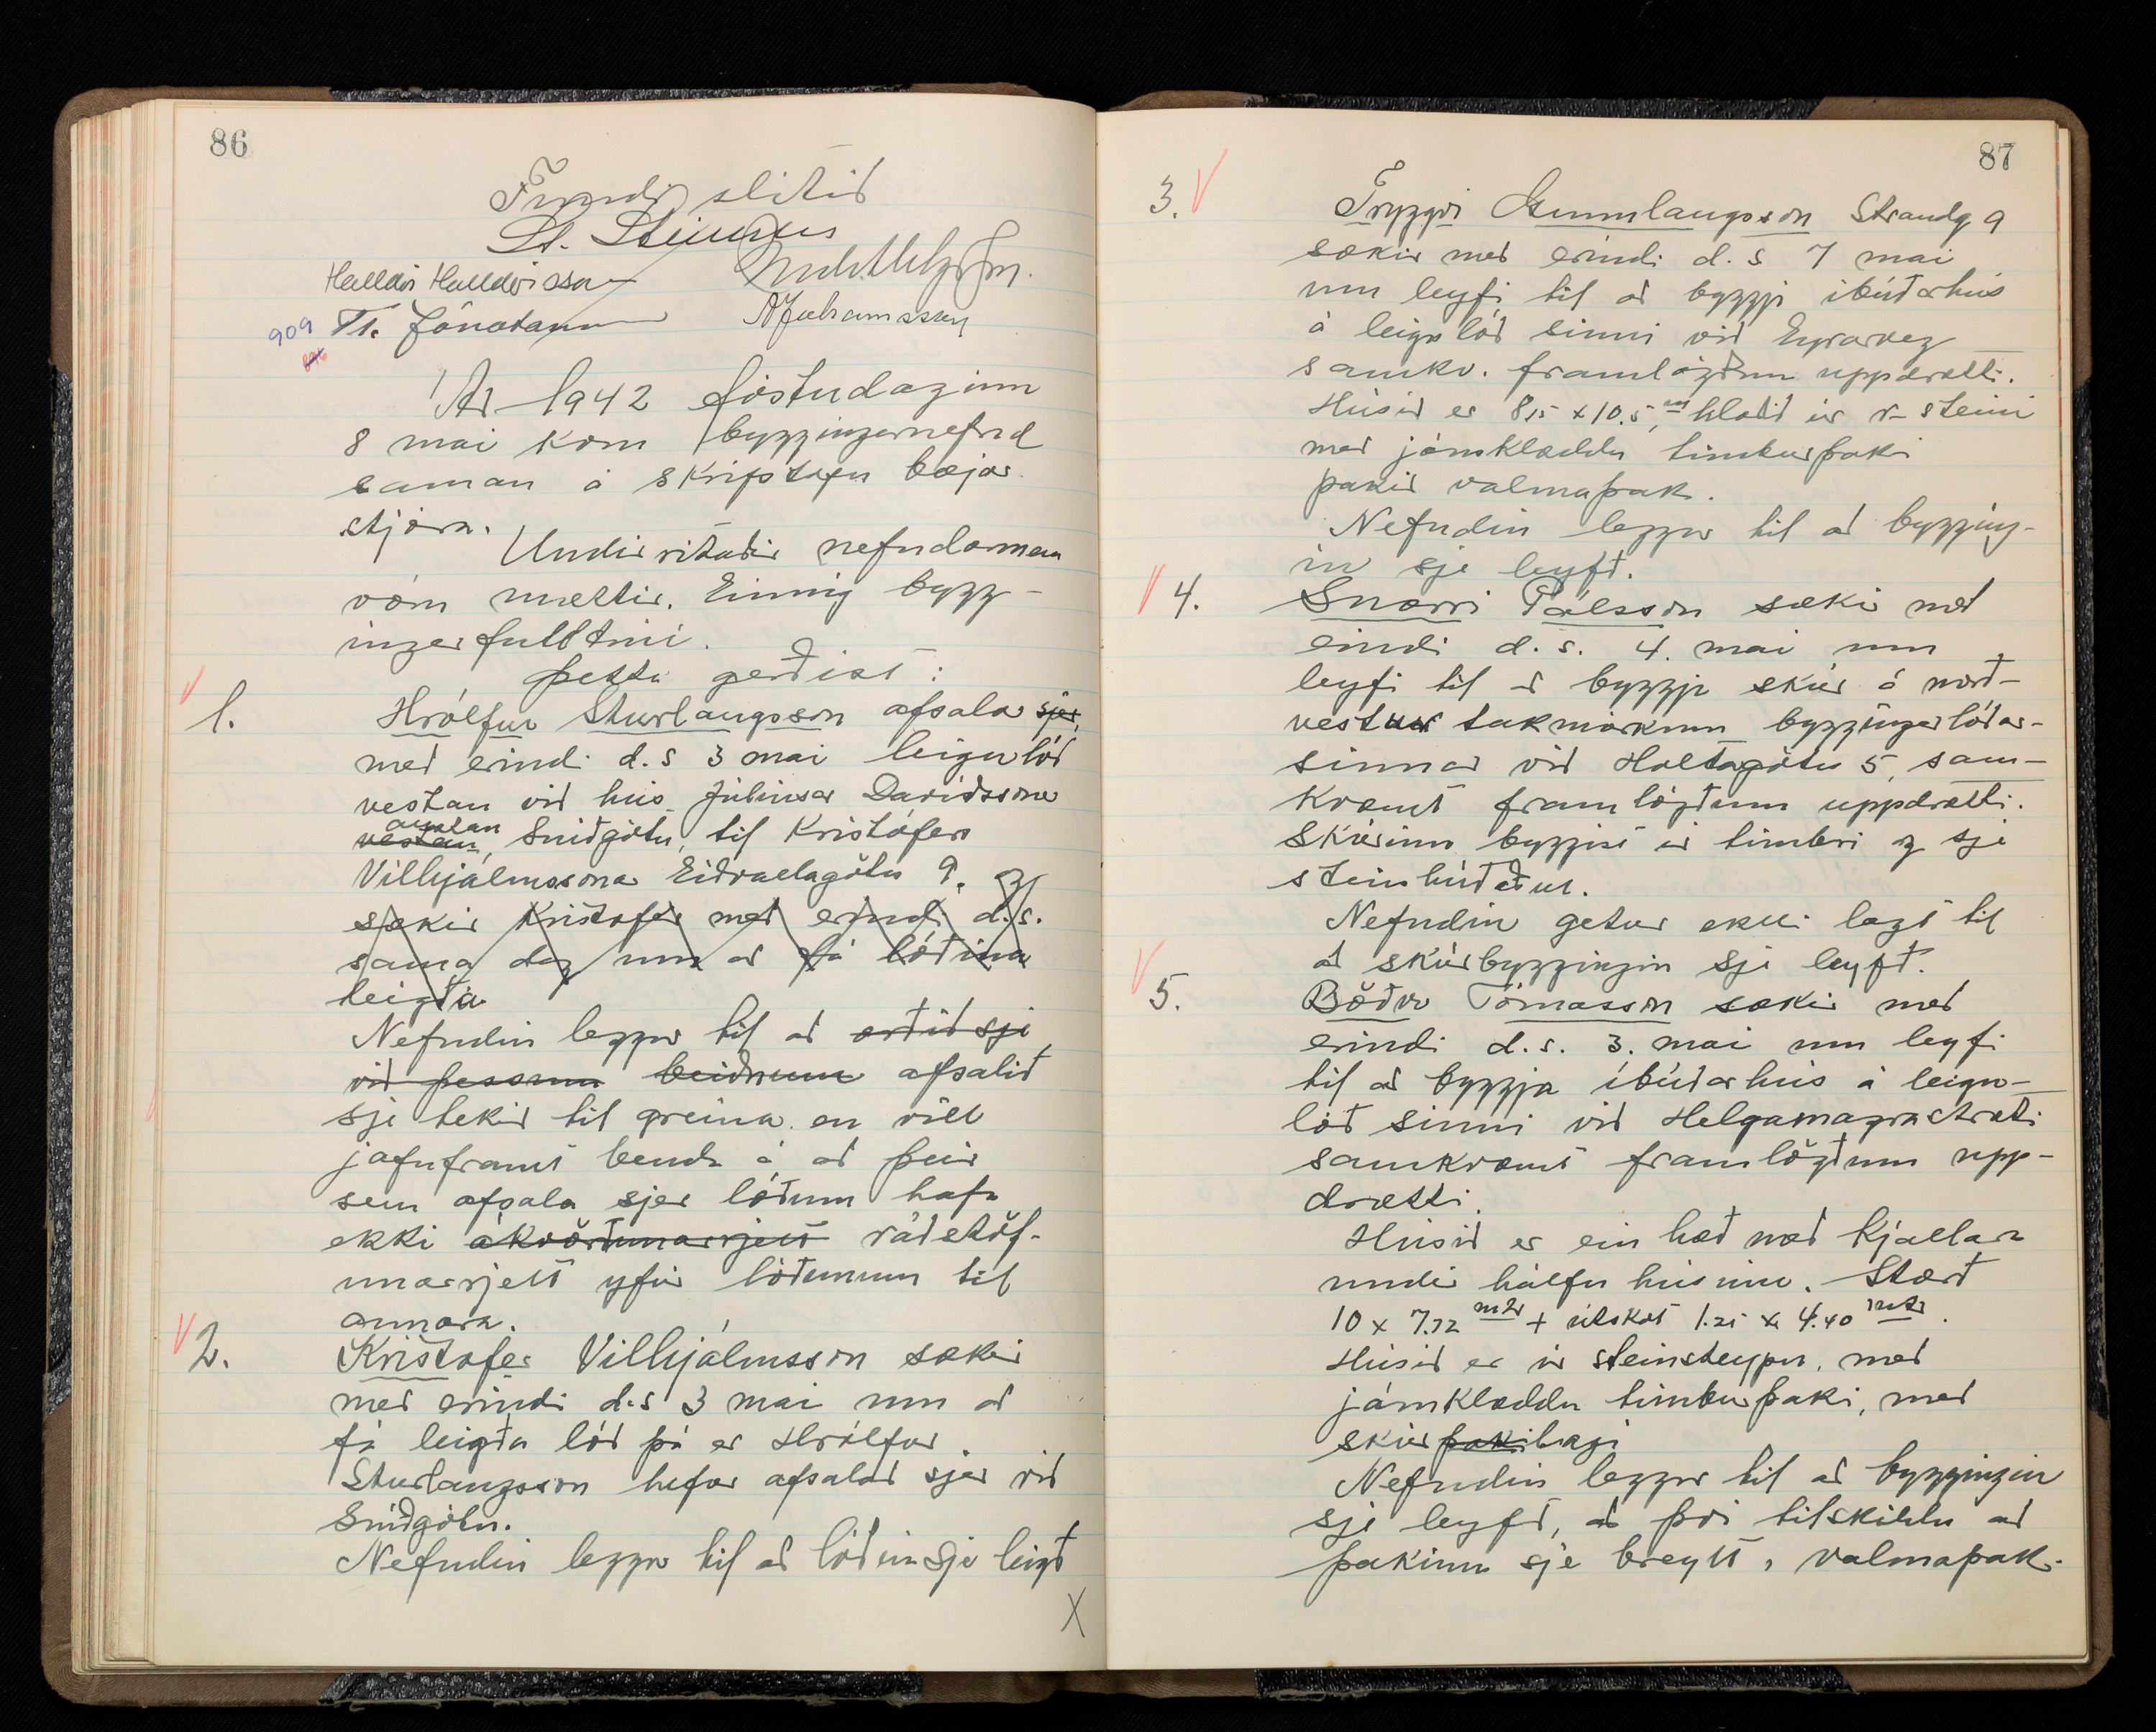 86
Fundi slitið
St. Steinsen
Halldór Halldórsson
Tr. Jónatansson A Jóhannsson
909
Ár 1942 föstudaginn
8 mai kom byggingarnefnd
saman á skrifstofu bæjar
stjóra.
Undirritaðir nefndarmenn
vóru mættir. Einnig bygg-
ingarfulltrúi.
Þetta gerðist:
1. Hrólfur Sturlaugsson afsalar sjer,
með erindi d.s 3 mai leigulóð
vestan við hús Júlíusar Davíðssonar
austan
vestan, Sniðgötu, til Kristófers
Villhjálmssonar Eiðsvallagötu 9. og
sækir Kristofer með erindi d.s.
sama dag um að fá lóðina
leigða
Nefndin leggur til að orðið sje
við þessum beiðnum afsalið
sje tekið til greina en vill
jafnframt benda á, að þeir
sem afsala sjer lóðum hafa
ekki ákvörðunarrjett ráðstöf-
unarrjett yfir lóðunum til
annara.
2. Kristofer Villhjálmsson sækir
með erindi d.s 3 mai um að
fá leigða lóð þá er Hrólfur
Sturlaugsson hefur afsalað sjer við
Sniðgötu.
Nefndin leggur til að lóðin sje leigð
X
87
3. Tryggvi Gunnlaugsson Strandg 9
sækir með erindi d.s 7 mai
um leyfi til að byggja íbúðarhús
á leigulóð sinni við Eyrarveg
samkv. framlögðum uppdrætti.
Húsið er 8,15 x 10.5 m, hlaðið úr r-steini
með járnklæddu timburþaki
þakið valmaþak.
Nefndin leggur til að bygging-
in sje leyfð.
4. Snorri Pálsson sækir með
erindi d.s. 4. mai um
leyfi til að byggja skúr á norð-
vestur takmörkum byggingarlóðar-
sinnar við Holtagötu 5, sam-
kvæmt framlögðum uppdrætti.
Skúrinn byggist úr timbri og sje
steinhúðaður.
Nefndin getur ekki lagt til
að skúrbyggingin sje leyfð.
5. Böðvar Tómasson sækir með
erindi d.s. 3. mai um leyfi
til að byggja íbúðarhús á leigu-
lóð sinni við Helgamagrastræti
samkvæmt framlögðum upp-
drætti.
Húsið er ein hæð með kjallara
undir hálfu húsinu. Stærð
10 x 7.72 mtr + útskot 1.25 x 4.40 mtr.
Húsið er úr steinsteypu, með
járnklæddu timburþaki, með
skúrþakilagi
Nefndin leggur til að byggingin
sje leyfð, að því tilskildu að
þakinu sje breytt í valmaþak.